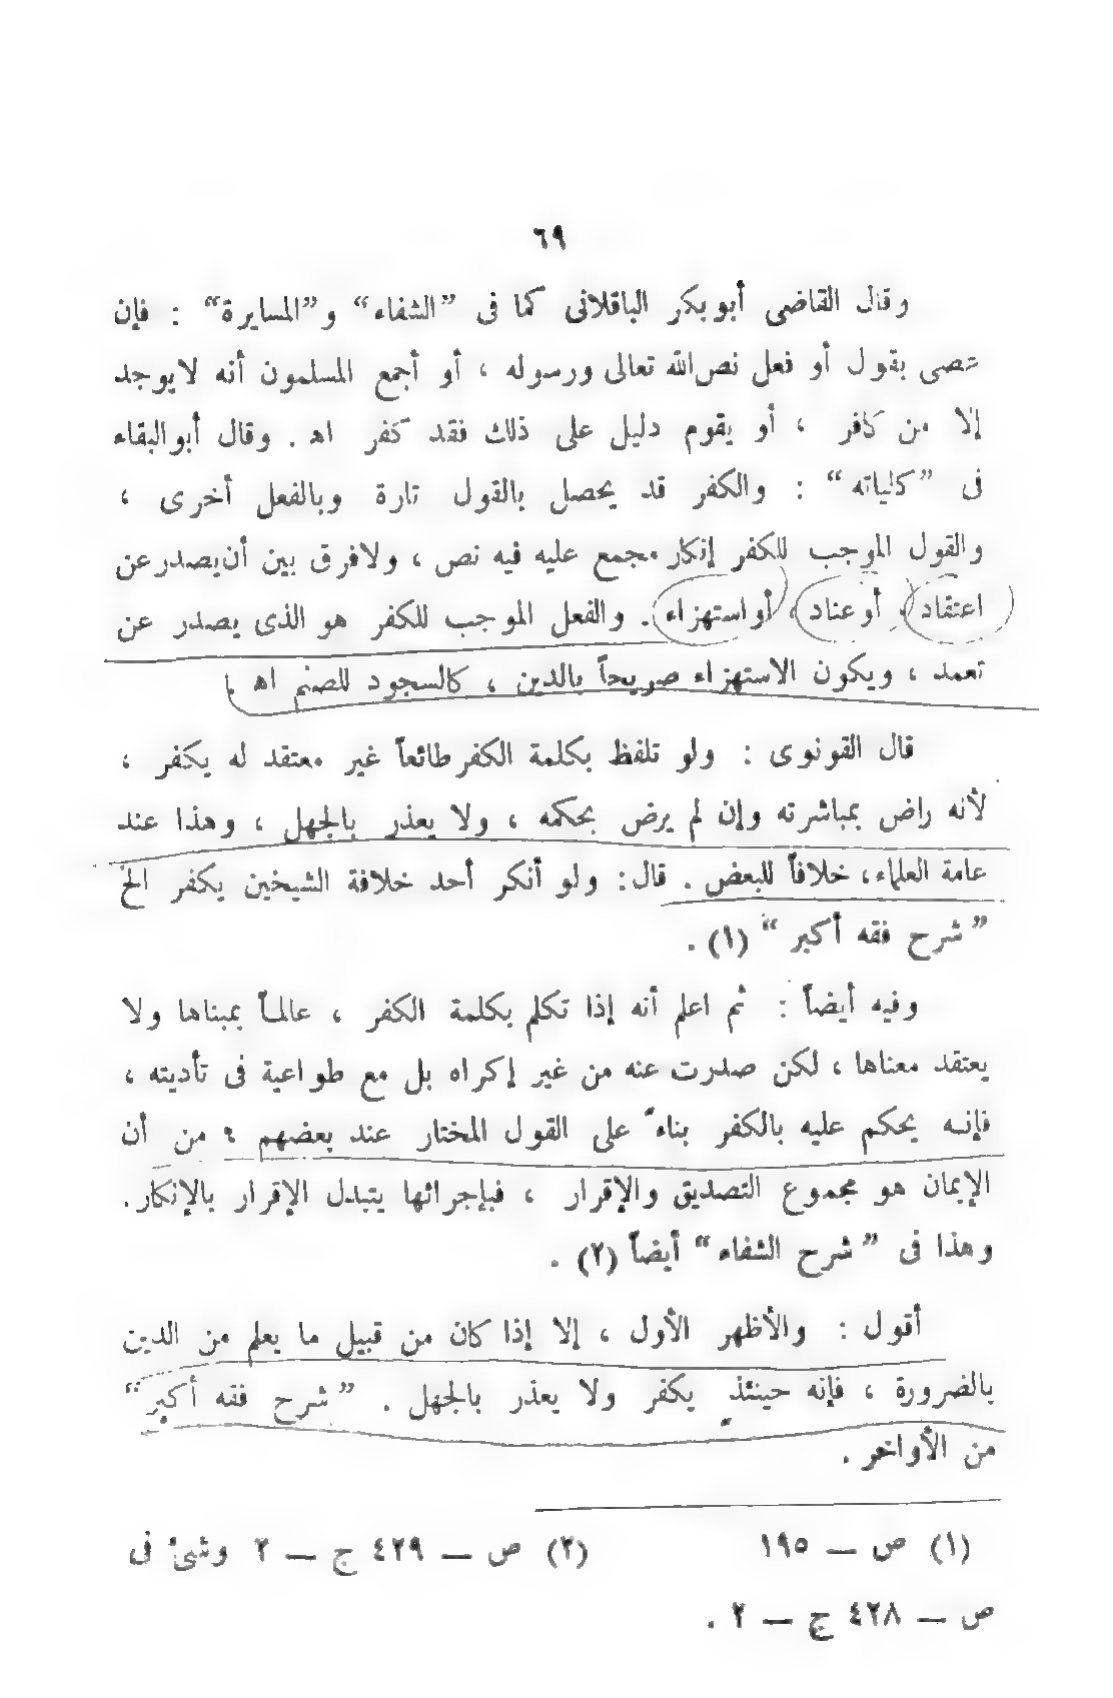 ٦٩
وقال القاضى أبوبكر الباقلانى كما فى ”الشفاء“ و”المسايرة“ : فإن
عصى بقول أو فعل نص الله تعالى ورسوله ، أو أجمع المسلمون أنه لايوجد
إلا من كافر ، أو يقوم دليل على ذلك فقد كفر اه . وقال أبوالبقاء
فى ”كلياته“ : والكفر قد يحصل بالقول تارة وبالفعل أخرى ،
والقول الموجب للكفر إنكار مجمع عليه فيه نص ، ولافرق بين أن يصدر عن
اعتقاد ، أو عناد ، أو استهزاء . والفعل الموجب للكفر هو الذى يصدر عن
تعمد ، ويكون الاستهزاء صريحاً بالدين ، كالسجود للصنم اه .
قال القونوى : ولو تلفظ بكلمة الكفر طائعاً غير معتقد له يكفر ،
لأنه راض بمباشرته وإن لم يرض بحكمه ، ولا يعذر بالجهل ، وهذا عند
عامة العلماء، خلافاً للبعض . قال: ولو أنكر أحد خلافة الشيخين يكفر الخ
”شرح فقه أكبر“ (١) .
وفيه أيضاً : ثم اعلم أنه إذا تكلم بكلمة الكفر ، عالماً بمبناها ولا
يعتقد معناها ، لكن صدرت عنه من غير إكراه بل مع طواعية فى تأديته ،
فإنه يحكم عليه بالكفر بناءً على القول المختار عند بعضهم ؛ من أن
الإيمان هو مجموع التصديق والإقرار ، فبإجرائها يتبدل الإقرار بالإنكار.
وهذا فى ”شرح الشفاء“ أيضاً (٢) .
أقول : والأظهر الأول ، إلا إذا كان من قبيل ما يعلم من الدين
بالضرورة ، فإنه حينئذٍ يكفر ولا يعذر بالجهل . ”شرح فقه أكبر“
من الأواخر .
(١) ص — ١٩٥ (٢) ص — ٤٢٩ ج — ٢ وشئ فى
ص — ٤٢٨ ج — ٢ .